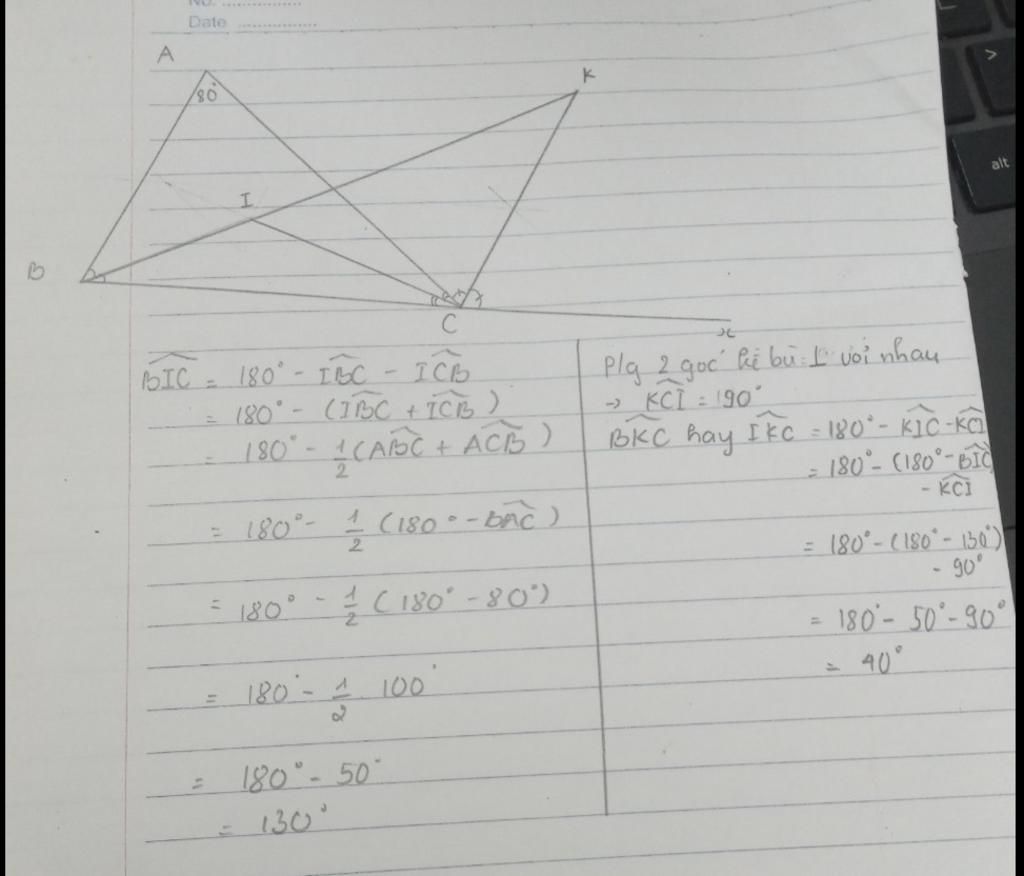 No. ................
Date ................
A
80°
K
I
B
C
x
BIC = 180° - IBC - ICB
= 180° - (IBC + ICB)
= 180° - 1/2 (ABC + ACB)
= 180° - 1/2 (180° - BAC)
= 180° - 1/2 (180° - 80°)
= 180° - 1/2 . 100°
= 180° - 50°
= 130°
P/g 2 góc kề bù ⊥ với nhau
→ KCI = 90°
BKC hay IKC = 180° - KIC - KCI
= 180° - (180° - BIC)
- KCI
= 180° - (180° - 130°)
- 90°
= 180° - 50° - 90°
= 40°
>
alt